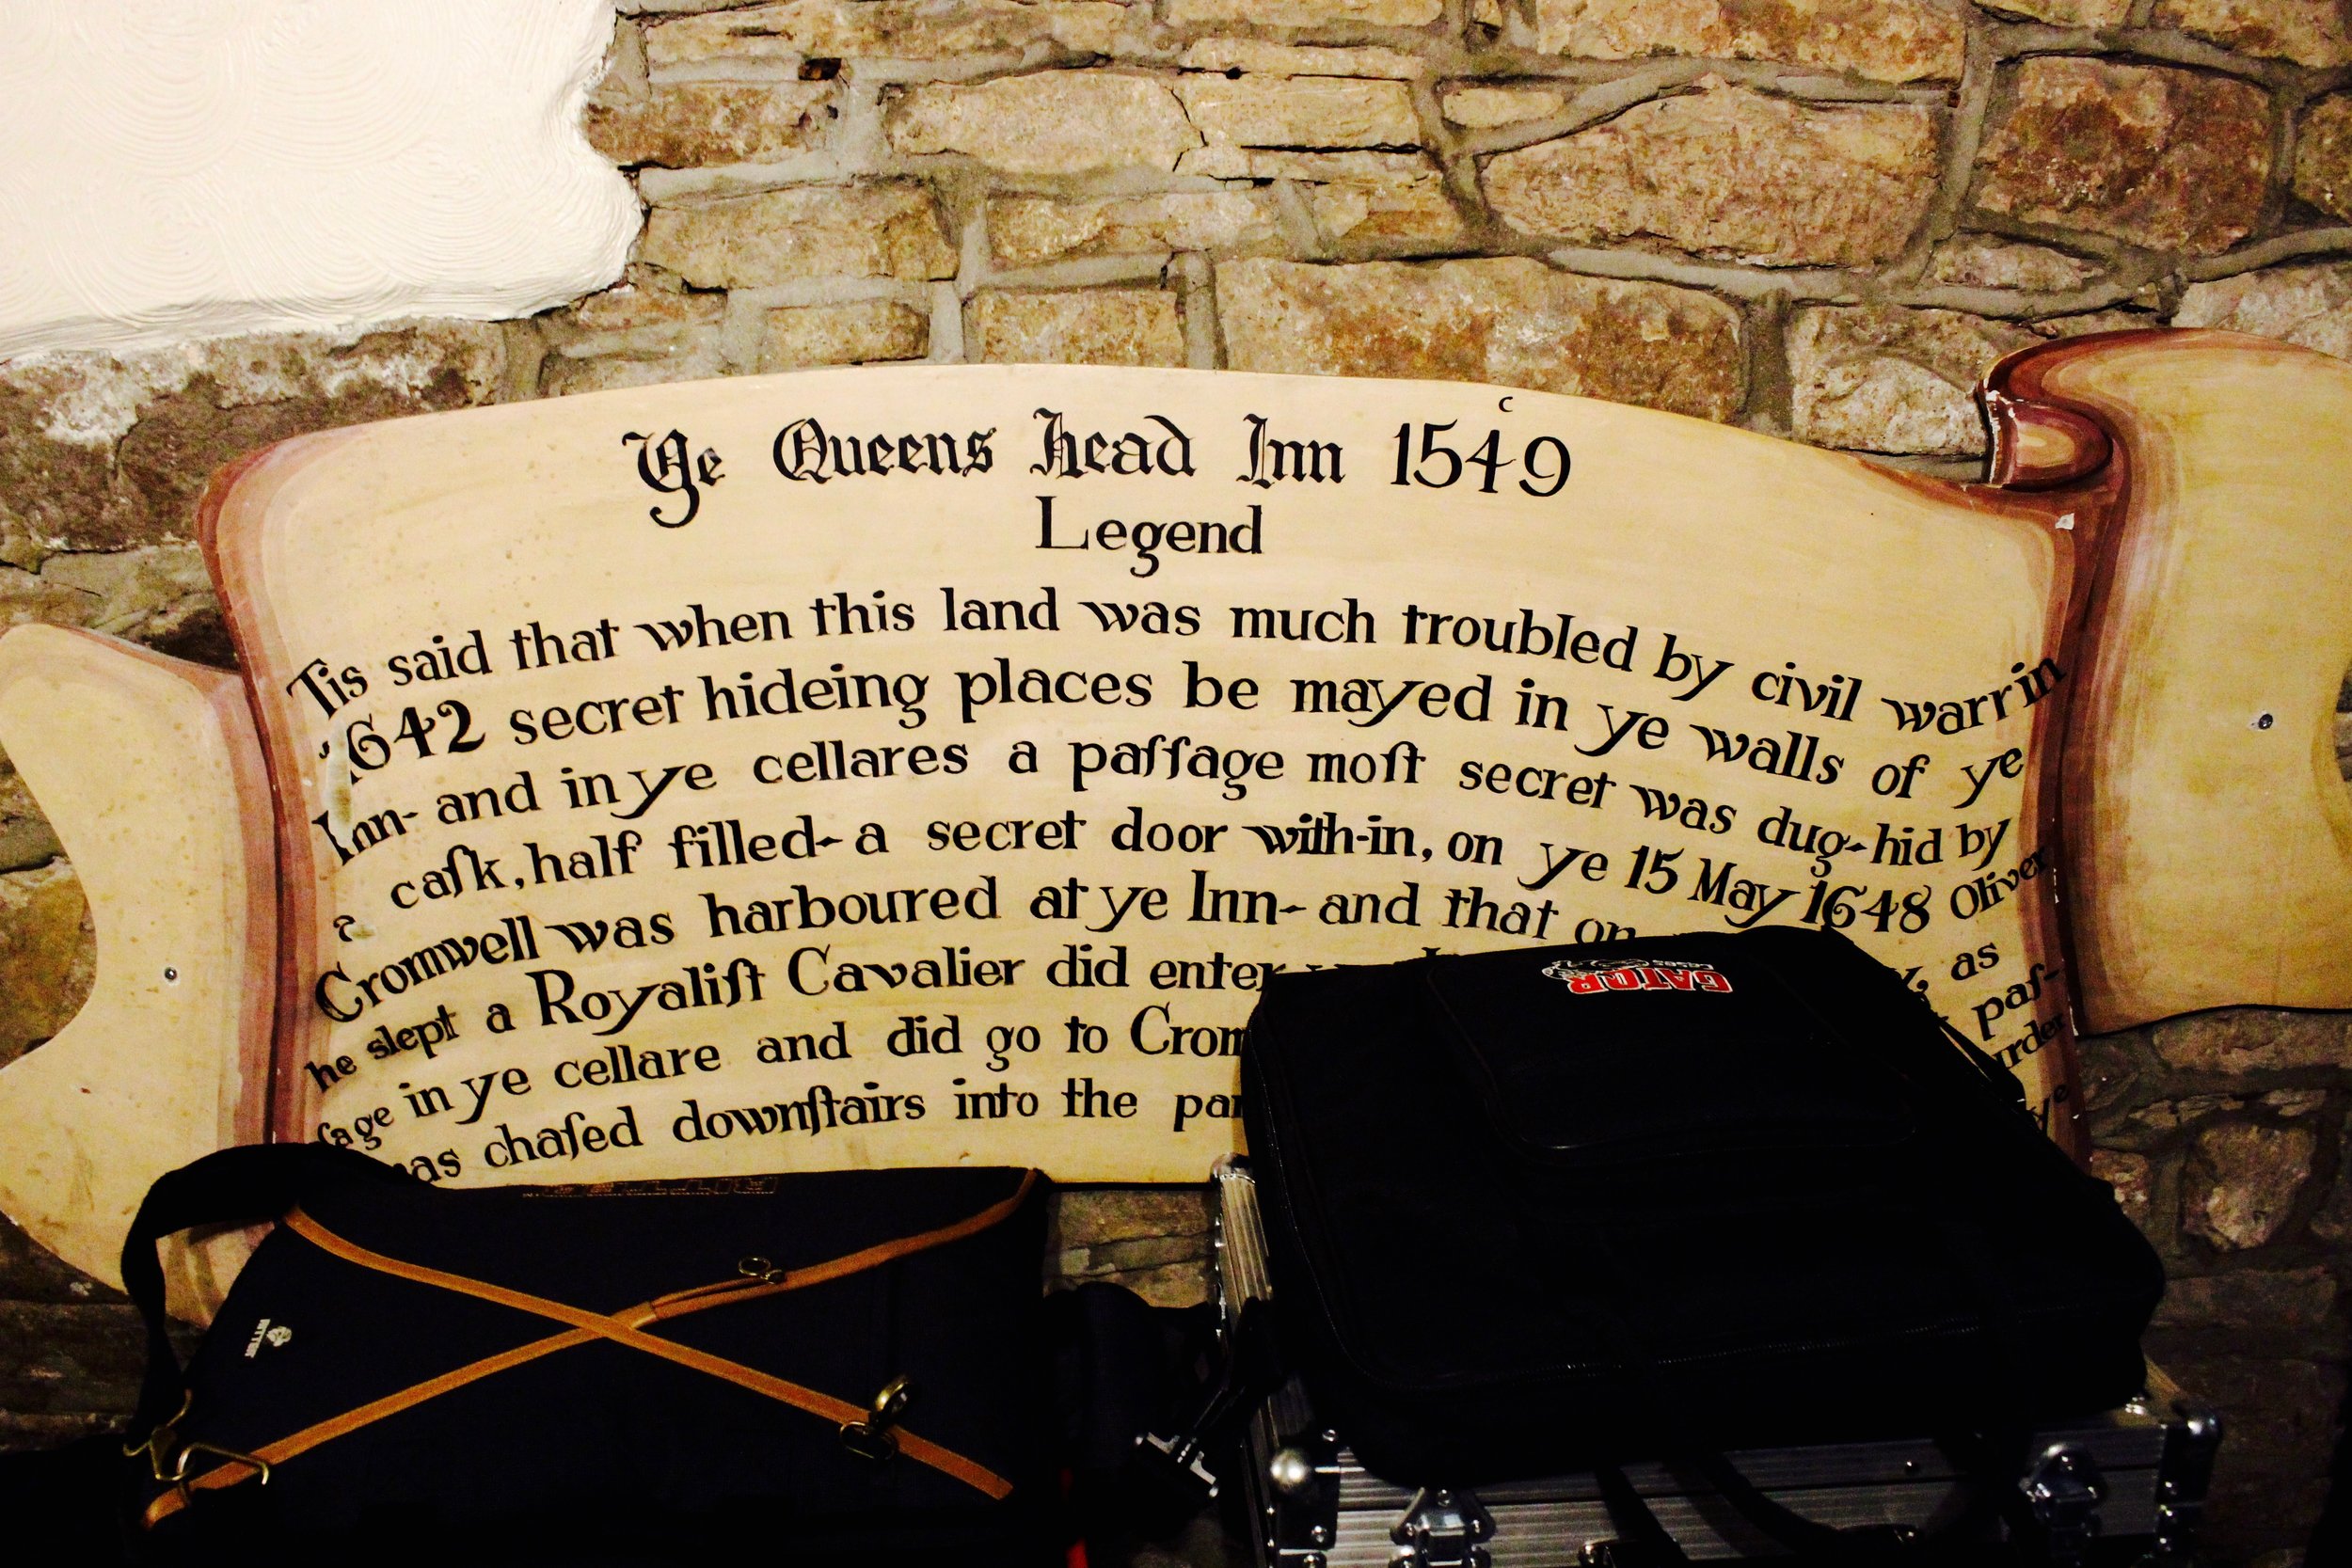 c
Ye Queens Head Inn 1549
Legend
Tis said that when this land was much troubled by civil warr in
1642 secret hideing places be mayed in ye walls of ye
Inn- and in ye cellares a paſſage moſt secret was dug-hid by
a caſk, half filled- a secret door with-in, on ye 15 May 1648 Oliver
Cromwell was harboured at ye Inn- and that on as
he slept a Royaliſt Cavalier did enter paſ-
ſage in ye cellare and did go to
chaſed downſtairs into the ye
GATOR
RITTER